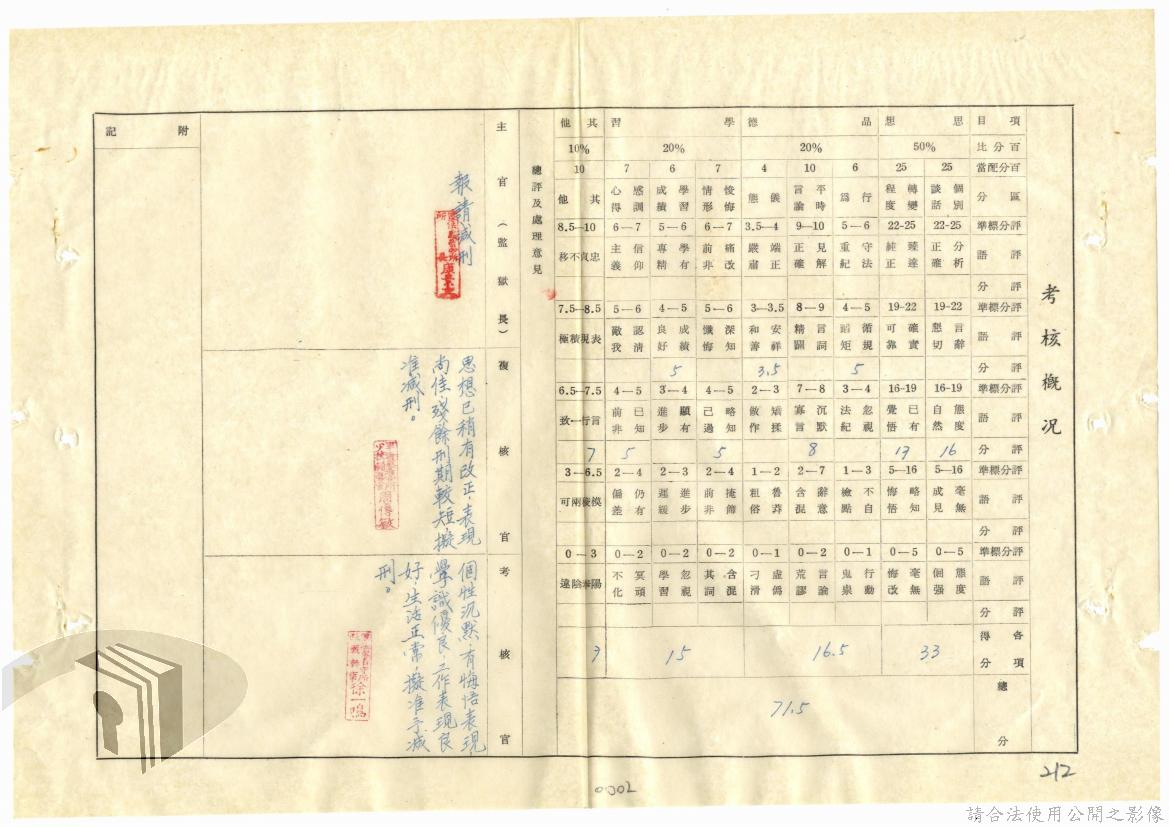 考核概況
項目 思想 品德 學習 其他
百分比 50% 20% 20% 10%
百分配當 25 25 6 10 4 7 6 7 10
區分 個別談話 轉變程度 行為 平時言論 儀態 悛悔情形 學習成績 感訓心得 其他
評分標準 22-25 22-25 5—6 9—10 3.5—4 6—7 5—6 6—7 8.5—10
評語 分析正確 臻達純正 守法重紀 見解正確 端正嚴肅 痛改前非 學有專精 信仰主義 忠貞不移
評分
評分標準 19-22 19-22 4—5 8—9 3—3.5 5—6 4—5 5—6 7.5—8.5
評語 言辭懇切 確實可靠 循規蹈矩 言詞精闢 安祥和善 深知懺悔 成績良好 認清敵我 表現積極
評分 5 3.5 5
評分標準 16-19 16-19 3—4 7—8 2—3 4—5 3—4 4—5 6.5—7.5
評語 態度自然 已有覺悟 忽視法紀 沉默寡言 矯揉做作 略知己過 顯有進步 已知前非 言行一致
評分 16 17 8 5 5 7
評分標準 5—16 5—16 1—3 2—7 1—2 2—4 2—3 2—4 3—6.5
評語 毫無成見 略知悔悟 不自檢點 辭意含混 魯莽粗俗 掩飾前非 進步遲緩 仍有偏差 模稜兩可
評分
評分標準 0—5 0—5 0—1 0—2 0—1 0—2 0—2 0—2 0—3
評語 態度個强 毫無悔改 行動鬼祟 言論荒謬 虛僞刁滑 含混其詞 忽視學習 冥頑不化 陽奉陰違
評分
各項得分 33 16.5 15 7
總分 71.5
總評及處理意見
主官（監獄長）
報請減刑
複核官
思想已稍有改正，表現
尚佳，殘餘刑期較短，擬
准減刑。
考核官
個性沉默，有悔悟表現，
學識優良，工作表現良
好，生活正常，擬准予減
刑。
附記
212
0002
請合法使用公開之影像